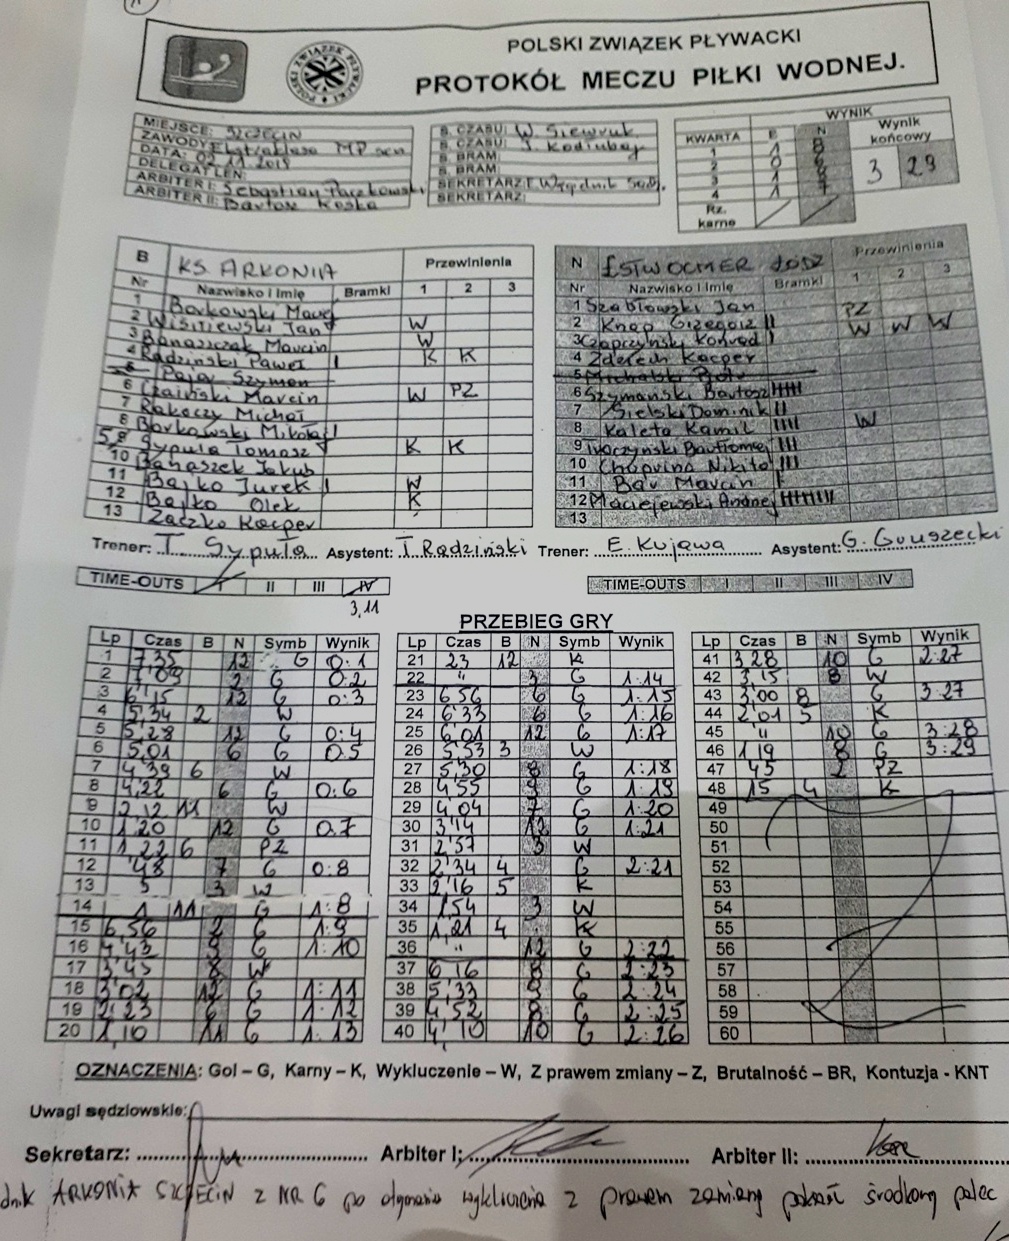 POLSKI ZWIĄZEK PŁYWACKI
PROTOKÓŁ MECZU PIŁKI WODNEJ.
MIEJSCE: SZCZECIN
ZAWODY: Ekstraklasa MP sen
DATA: 02.11.2019
DELEGAT LEN:
ARBITER I: Sebastian Paczkowski
ARBITER II: Bartosz Koska
S. CZASU: W. Siewruk
S. CZASU: J.
S. BRAM:
S. BRAM
SEKRETARZ:
SEKRETARZ:
WYNIK
KWARTA B N Wynik końcowy
1 1 8
2 0 6
3 1 8
4 1 7
3 29
Rz. karne
B KS ARKONIA Przewinienia
Nr Nazwisko i Imię Bramki 1 2 3
1 Borkowski
2 Wiśniewski Jan W
3 Banaszczak Marcin W
4 Radziński Paweł I K K
5
6 Marcin W PZ
7 Rakoczy Michał
8 Borkowski Mikołaj I
5,9 Sypuła Tomasz K K
10 Banaszek Jakub
11 Bajko Jurek I W
12 Bajko Olek K
13 Zaczko Kacper
N ŁSTW OCMER ŁÓDŹ Przewinienia
Nr Nazwisko i Imię Bramki 1 2 3
1 Szabłowski Jan
2 Knap Grzegorz II PZ
3 Czapczyński Konrad I W W W
4 Kacper
5
6 Szymański Bartosz
7 Sielski Dominik II
8 Kaleta Kamil IIII W
9 Tworzyński Bartłomiej
10 Nikita III
11 Bar Marcin I
12 Maciejewski Andrzej
13
Trener: T. Sypuła Asystent: T. Radziński Trener: E. Kujawa Asystent: G. Gruszecki
TIME-OUTS I II III IV
3,11
TIME-OUTS I II III IV
PRZEBIEG GRY
Lp Czas B N Symb Wynik
1 7,35 12 G 0:1
2 7,09 2 G 0:2
3 6,15 12 G 0:3
4 5,34 2 W
5 5,28 12 G 0:4
6 5,01 6 G 0:5
7 4,39 6 W
8 4,22 6 G 0:6
9 2,12 11 W
10 1,20 12 G 0:7
11 1,22 6 PZ
12 48 7 G 0:8
13 5 3 W
14 1 11 G 1:8
15 6,56 2 G 1:9
16 4,43 9 G 1:10
17 3,45 8 W
18 3,02 12 G 1:11
19 2,23 6 G 1:12
20 1,10 11 G 1:13
Lp Czas B N Symb Wynik
21 23 12 K
22 " 3 G 1:14
23 6,56 6 G 1:15
24 6,33 6 G 1:16
25 6,01 12 G 1:17
26 5,53 3 W
27 5,30 8 G 1:18
28 4,55 9 G 1:19
29 4,04 7 G 1:20
30 3,14 12 G 1:21
31 2,57 3 W
32 2,34 4 G 2:21
33 2,16 5 K
34 1,54 3 W
35 1,21 4 K
36 " 12 G 2:22
37 6,16 8 G 2:23
38 5,33 9 G 2:24
39 4,52 8 G 2:25
40 4,10 10 G 2:26
Lp Czas B N Symb Wynik
41 3,28 10 G 2:27
42 3,15 8 W
43 3,00 8 G 3:27
44 2,01 5 K
45 " 10 G 3:28
46 1,19 8 G 3:29
47 45 2 PZ
48 15 4 K
49
50
51
52
53
54
55
56
57
58
59
60
OZNACZENIA: Gol – G, Karny – K, Wykluczenie – W, Z prawem zmiany – Z, Brutalność – BR, Kontuzja - KNT
Uwagi sędziowskie:
Sekretarz: Arbiter I: Arbiter II:
dnik ARKONIA SZCZECIN z NR 6 po otrzymaniu wykluczenia z prawem zamiany pokazał środkowy palec